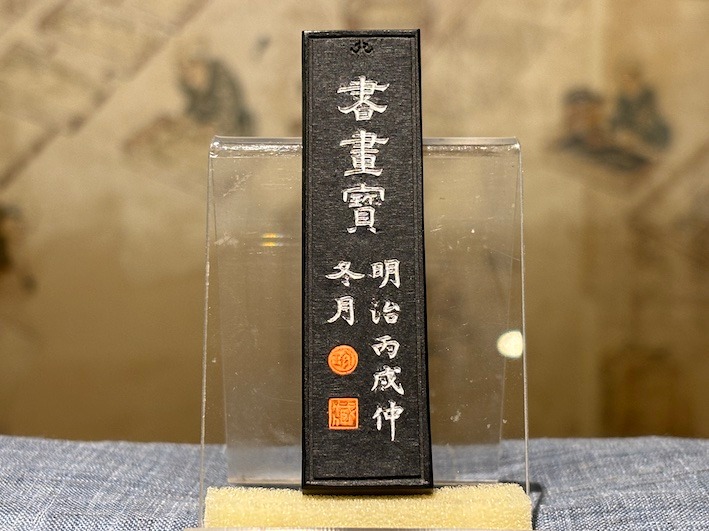 書畫寶
明治丙戌仲
冬月
珍
藏